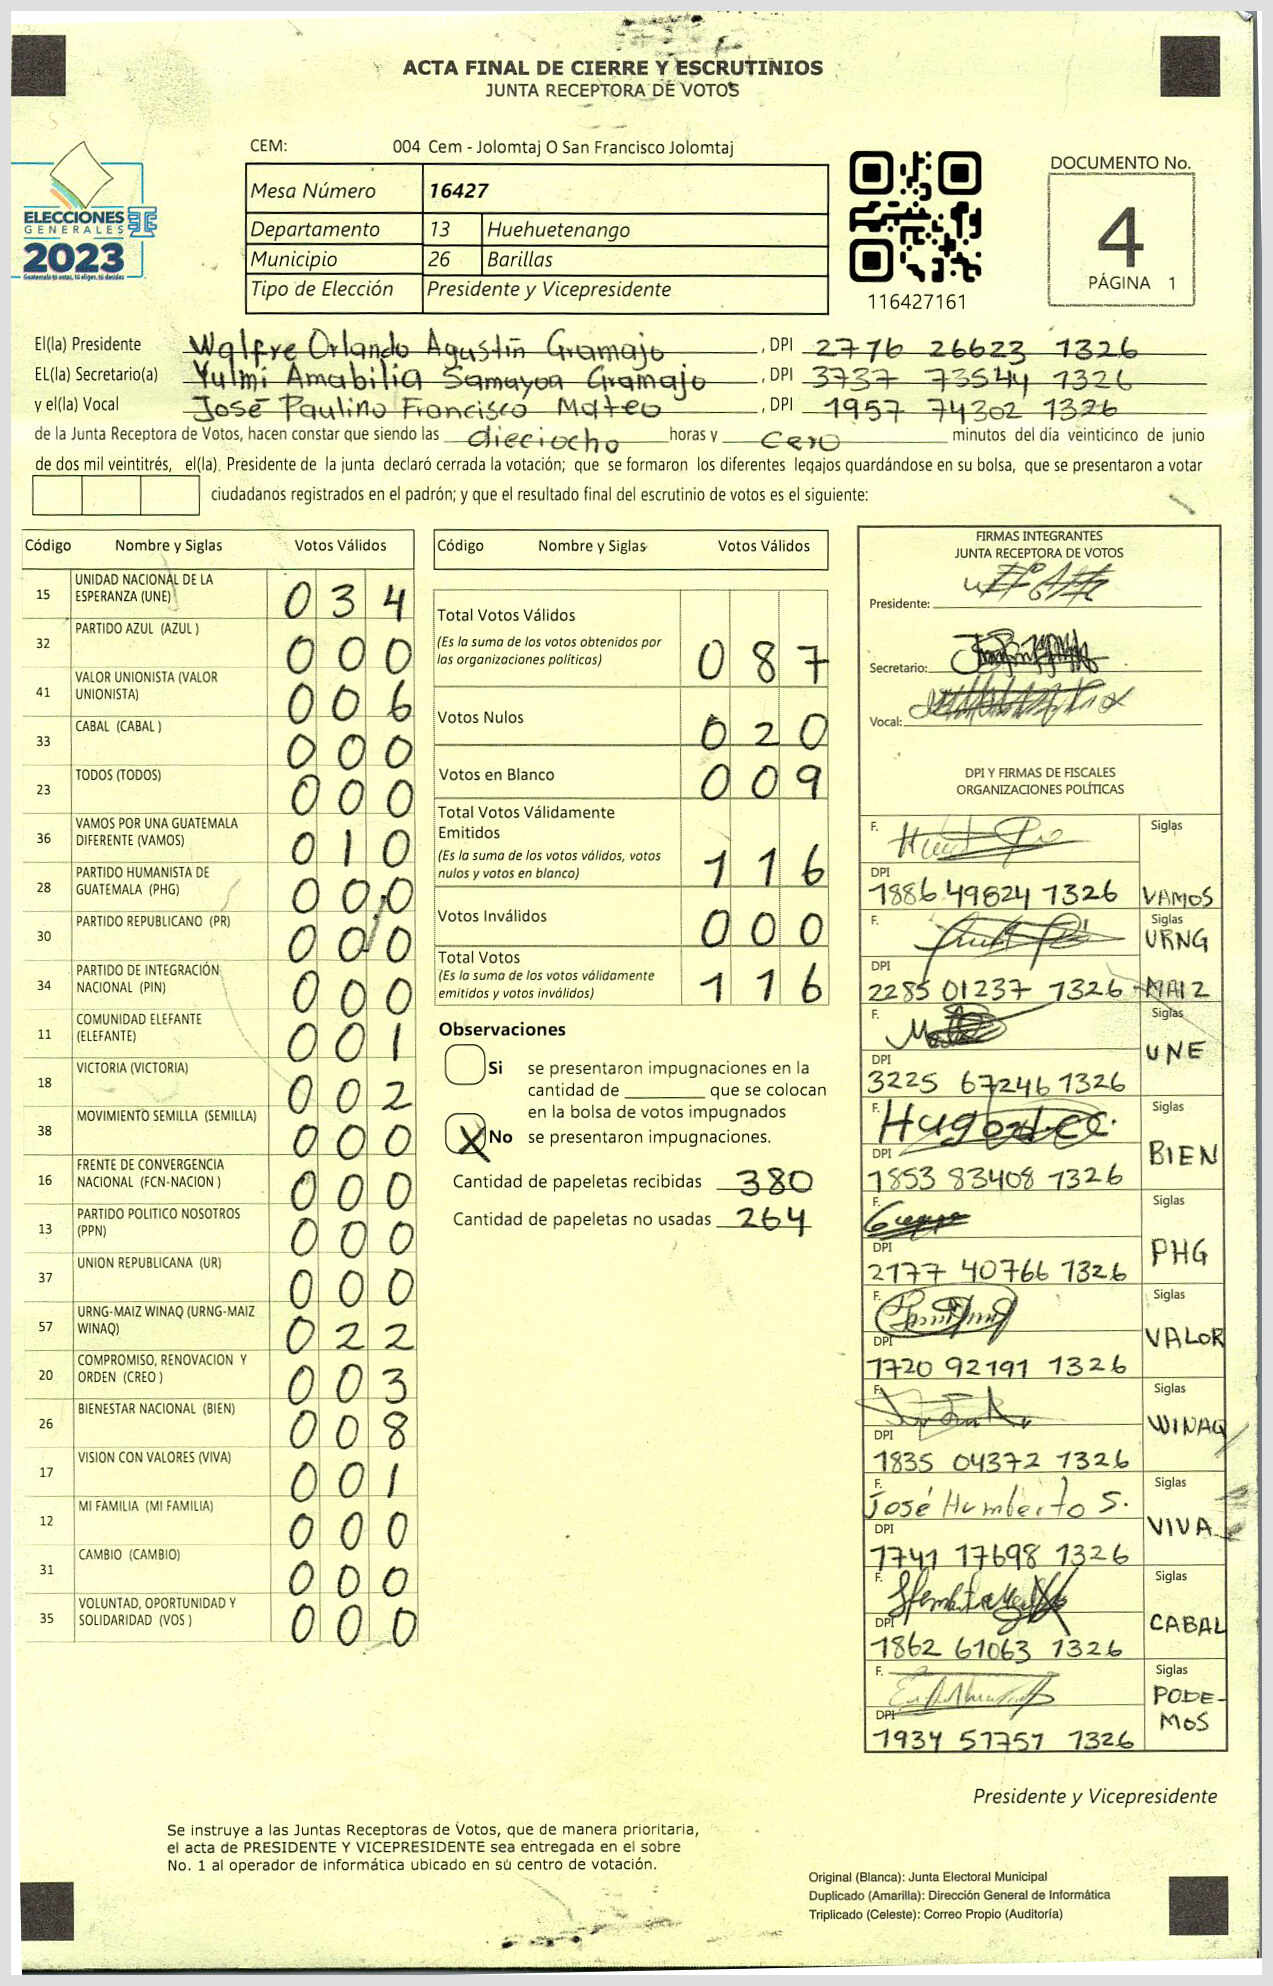 ACTA FINAL DE CIERRE Y ESCRUTINIOS
JUNTA RECEPTORA DE VOTOS
CEM: 004 Cem - Jolomtaj O San Francisco Jolomtaj
ELECCIONES
GENERALES
2023
Guatemala tú votas, tú eliges, tú decides
Mesa Número 16427
Departamento 13 Huehuetenango
Municipio 26 Barillas
Tipo de Elección Presidente y Vicepresidente
116427161
DOCUMENTO No.
4
PÁGINA 1
El(la) Presidente Walfre Orlando Agustín Gramajo, DPI 2776 26623 1326
EL(la) Secretario(a) Yulmi Amabilia Samayoa Gramajo, DPI 3737 73544 1326
y el(la) Vocal José Paulino Francisco Mateo, DPI 1957 74302 1326
de la Junta Receptora de Votos, hacen constar que siendo las dieciocho horas y cero minutos del día veinticinco de junio
de dos mil veintitrés, el(la). Presidente de la junta declaró cerrada la votación; que se formaron los diferentes legajos guardándose en su bolsa, que se presentaron a votar
ciudadanos registrados en el padrón; y que el resultado final del escrutinio de votos es el siguiente:
Código Nombre y Siglas Votos Válidos
15 UNIDAD NACIONAL DE LA ESPERANZA (UNE) 034
32 PARTIDO AZUL (AZUL ) 000
41 VALOR UNIONISTA (VALOR UNIONISTA) 006
33 CABAL (CABAL ) 000
23 TODOS (TODOS) 000
36 VAMOS POR UNA GUATEMALA DIFERENTE (VAMOS) 010
28 PARTIDO HUMANISTA DE GUATEMALA (PHG) 000
30 PARTIDO REPUBLICANO (PR) 000
34 PARTIDO DE INTEGRACIÓN NACIONAL (PIN) 000
11 COMUNIDAD ELEFANTE (ELEFANTE) 001
18 VICTORIA (VICTORIA) 002
38 MOVIMIENTO SEMILLA (SEMILLA) 000
16 FRENTE DE CONVERGENCIA NACIONAL (FCN-NACION ) 000
13 PARTIDO POLITICO NOSOTROS (PPN) 000
37 UNION REPUBLICANA (UR) 000
57 URNG-MAIZ WINAQ (URNG-MAIZ WINAQ) 022
20 COMPROMISO, RENOVACION Y ORDEN (CREO ) 003
26 BIENESTAR NACIONAL (BIEN) 008
17 VISION CON VALORES (VIVA) 001
12 MI FAMILIA (MI FAMILIA) 000
31 CAMBIO (CAMBIO) 000
35 VOLUNTAD, OPORTUNIDAD Y SOLIDARIDAD (VOS ) 000
Código Nombre y Siglas Votos Válidos
Total Votos Válidos
(Es la suma de los votos obtenidos por
las organizaciones políticas) 087
Votos Nulos 020
Votos en Blanco 009
Total Votos Válidamente
Emitidos
(Es la suma de los votos válidos, votos
nulos y votos en blanco) 116
Votos Inválidos 000
Total Votos
(Es la suma de los votos válidamente
emitidos y votos inválidos) 116
Observaciones
Si se presentaron impugnaciones en la
cantidad de ________ que se colocan
en la bolsa de votos impugnados
X No se presentaron impugnaciones.
Cantidad de papeletas recibidas 380
Cantidad de papeletas no usadas 264
FIRMAS INTEGRANTES
JUNTA RECEPTORA DE VOTOS
Presidente:
Secretario:
Vocal:
DPI Y FIRMAS DE FISCALES
ORGANIZACIONES POLÍTICAS
F. Siglas
DPI
1886 49824 1326 VAMOS
F. Siglas
URNG
DPI
2285 01237 1326 MAIZ
F. Siglas
UNE
DPI
3225 67246 1326
F. Siglas
BIEN
DPI
1853 83408 1326
F. Siglas
PHG
DPI
2177 40766 1326
F. Siglas
VALOR
DPI
1720 92191 1326
F. Siglas
WINAQ
DPI
1835 04372 1326
F. José Humberto S. Siglas
VIVA
DPI
1741 17698 1326
F. Siglas
CABAL
DPI
1862 61063 1326
F. Siglas
PODE-
MOS
DPI
1934 51751 1326
Presidente y Vicepresidente
Se instruye a las Juntas Receptoras de Votos, que de manera prioritaria,
el acta de PRESIDENTE Y VICEPRESIDENTE sea entregada en el sobre
No. 1 al operador de informática ubicado en su centro de votación.
Original (Blanca): Junta Electoral Municipal
Duplicado (Amarilla): Dirección General de Informática
Triplicado (Celeste): Correo Propio (Auditoría)